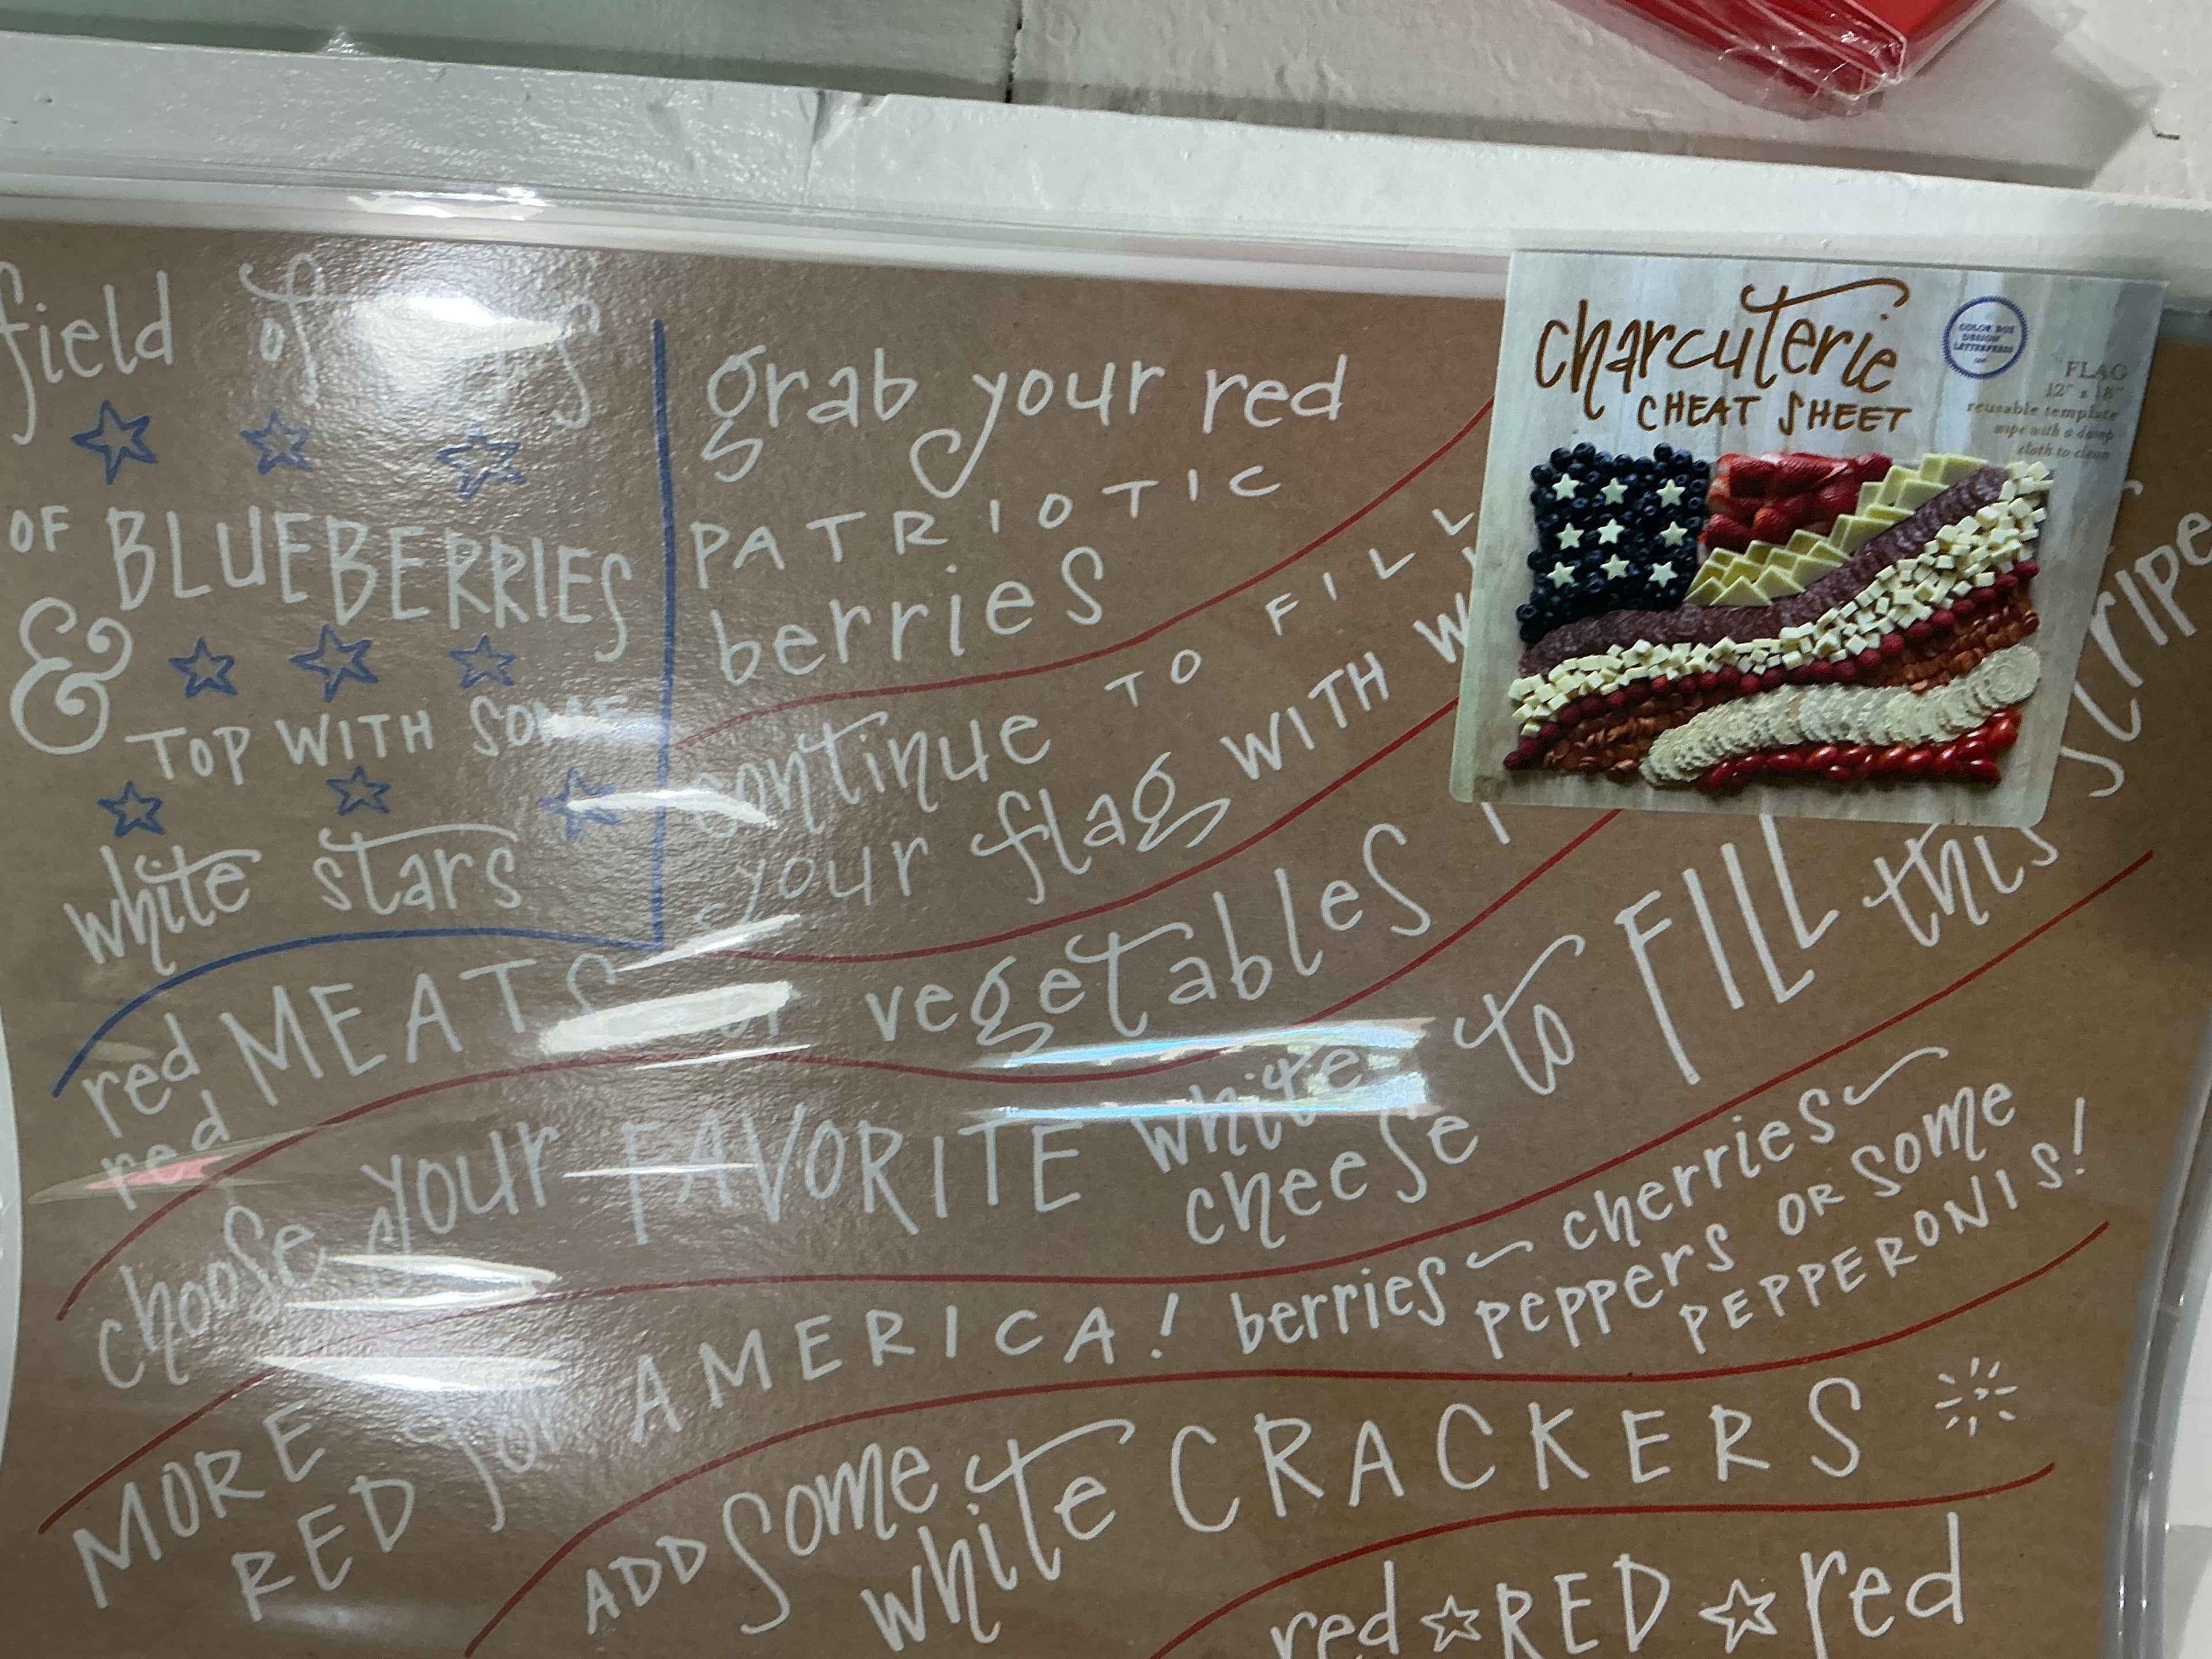 field of
OF BLUEBERRIES
&
TOP WITH SOME
white stars
grab your red
PATRIOTIC
berries
continue TO FILL
your flag WITH
red MEATS or vegetables
red
choose your FAVORITE white
cheese
to FILL this stripe
MORE
RED for AMERICA! berries cherries
peppers OR some
PEPPERONIS!
ADD some
white CRACKERS
red RED red
charcuterie
CHEAT SHEET
COLOR BOX
DESIGN
LETTERPRESS
FLAG
12" x 18"
reusable template
wipe with a damp
cloth to clean